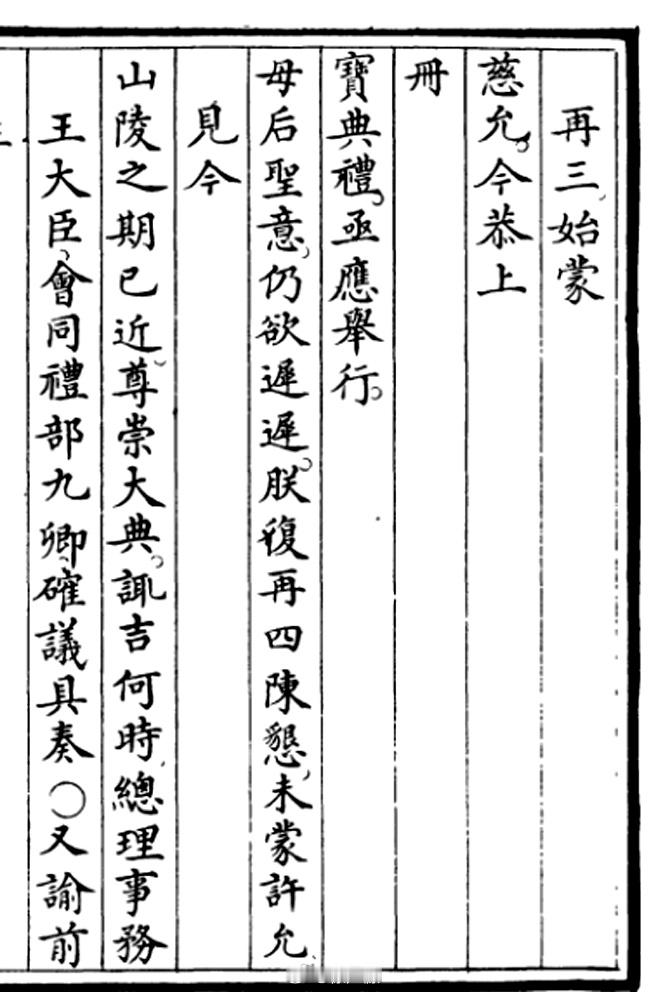 再三始蒙
慈允今恭上
冊
寶典禮亟應舉行
母后聖意仍欲遲遲朕復再四陳懇未蒙許允
見今
山陵之期已近尊崇大典諏吉何時總理事務
王大臣會同禮部九卿確議具奏○又諭前